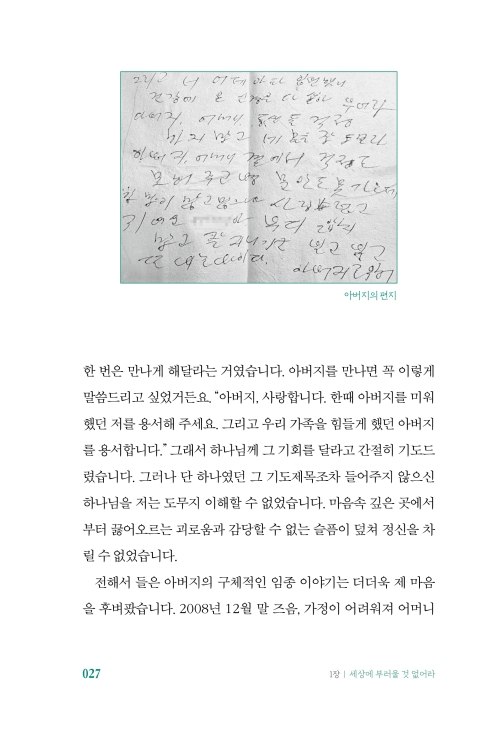 그리고 너
건강이
아버지, 어머니,
하지 말고 네 몸
아버지, 어머니 곁에서 걱정도
할 말이 많고
빌고 빌고
또 비는
아버지로부터
아버지의 편지
한 번은 만나게 해달라는 거였습니다. 아버지를 만나면 꼭 이렇게
말씀드리고 싶었거든요. “아버지, 사랑합니다. 한때 아버지를 미워
했던 저를 용서해 주세요. 그리고 우리 가족을 힘들게 했던 아버지
를 용서합니다.” 그래서 하나님께 그 기회를 달라고 간절히 기도드
렸습니다. 그러나 단 하나였던 그 기도제목조차 들어주지 않으신
하나님을 저는 도무지 이해할 수 없었습니다. 마음속 깊은 곳에서
부터 끓어오르는 괴로움과 감당할 수 없는 슬픔이 덮쳐 정신을 차
릴 수 없었습니다.
전해서 들은 아버지의 구체적인 임종 이야기는 더더욱 제 마음
을 후벼팠습니다. 2008년 12월 말 즈음, 가정이 어려워져 어머니
027
1장 | 세상에 부러울 것 없어라